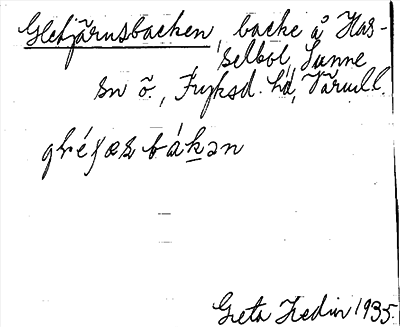 Gletjärnsbacken, backe å Has-
selbol, Sunne
sn ö, Fryksd. hd, Värmll.
gléças bákən
Greta Hedin 1935.